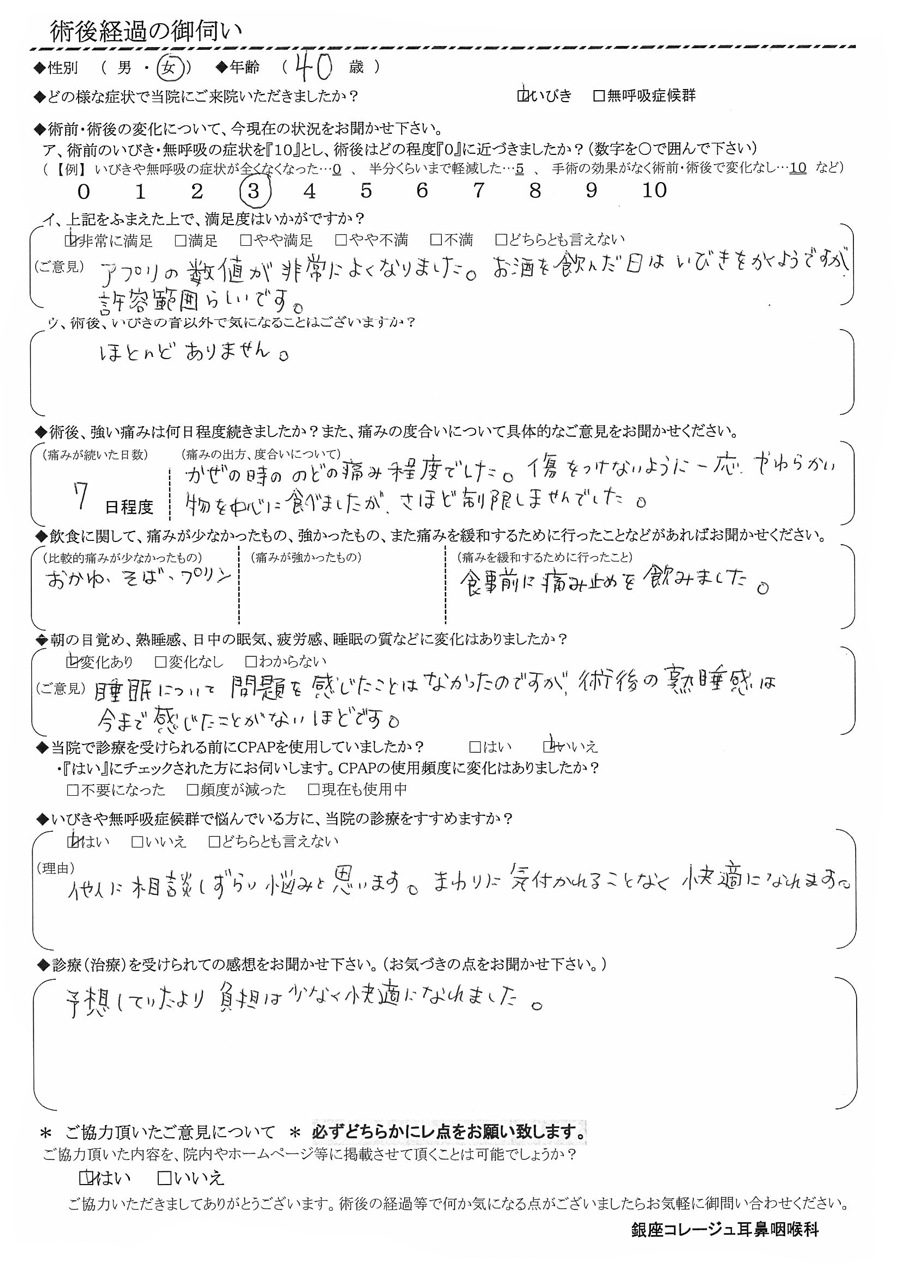 術後経過の御伺い
◆性別 ( 男 ・ 女 ) ◆年齢 ( 40 歳 )
◆どの様な症状で当院にご来院いただきましたか? ☑いびき □無呼吸症候群
◆術前・術後の変化について、今現在の状況をお聞かせ下さい。
ア、術前のいびき・無呼吸の症状を『10』とし、術後はどの程度『0』に近づきましたか?(数字を○で囲んで下さい)
(【例】 いびきや無呼吸の症状が全くなくなった…0 、 半分くらいまで軽減した…5 、 手術の効果がなく術前・術後で変化なし…10 など)
0 1 2 3 4 5 6 7 8 9 10
イ、上記をふまえた上で、満足度はいかがですか?
☑非常に満足 □満足 □やや満足 □やや不満 □不満 □どちらとも言えない
(ご意見) アプリの数値が非常によくなりました。お酒を飲んだ日はいびきをかくようですが、
許容範囲らしいです。
ウ、術後、いびきの音以外で気になることはございますか?
ほとんどありません。
◆術後、強い痛みは何日程度続きましたか?また、痛みの度合いについて具体的なご意見をお聞かせください。
(痛みが続いた日数) (痛みの出方、度合いについて)
かぜの時ののどの痛み程度でした。傷をつけないように一応、やわらかい
7 日程度 物を中心に食べましたが、さほど制限しませんでした。
◆飲食に関して、痛みが少なかったもの、強かったもの、また痛みを緩和するために行ったことなどがあればお聞かせください。
(比較的痛みが少なかったもの) (痛みが強かったもの) (痛みを緩和するために行ったこと)
おかゆ、そば、プリン 食事前に痛み止めを飲みました。
◆朝の目覚め、熟睡感、日中の眠気、疲労感、睡眠の質などに変化はありましたか?
☑変化あり □変化なし □わからない
(ご意見) 睡眠について問題を感じたことはなかったのですが、術後の熟睡感は
今まで感じたことがないほどです。
◆当院で診療を受けられる前にCPAPを使用していましたか? □はい ☑いいえ
・『はい』にチェックされた方にお伺いします。CPAPの使用頻度に変化はありましたか?
□不要になった □頻度が減った □現在も使用中
◆いびきや無呼吸症候群で悩んでいる方に、当院の診療をすすめますか?
☑はい □いいえ □どちらとも言えない
(理由) 他人に相談しずらい悩みと思います。まわりに気付かれることなく快適になれます。
◆診療(治療)を受けられての感想をお聞かせ下さい。(お気づきの点をお聞かせ下さい。)
予想していたより負担は少なく快適になれました。
＊ ご協力頂いたご意見について ＊ 必ずどちらかにレ点をお願い致します。
ご協力頂いた内容を、院内やホームページ等に掲載させて頂くことは可能でしょうか?
☑はい □いいえ
ご協力いただきましてありがとうございます。術後の経過等で何か気になる点がございましたらお気軽に御問い合わせください。
銀座コレージュ耳鼻咽喉科